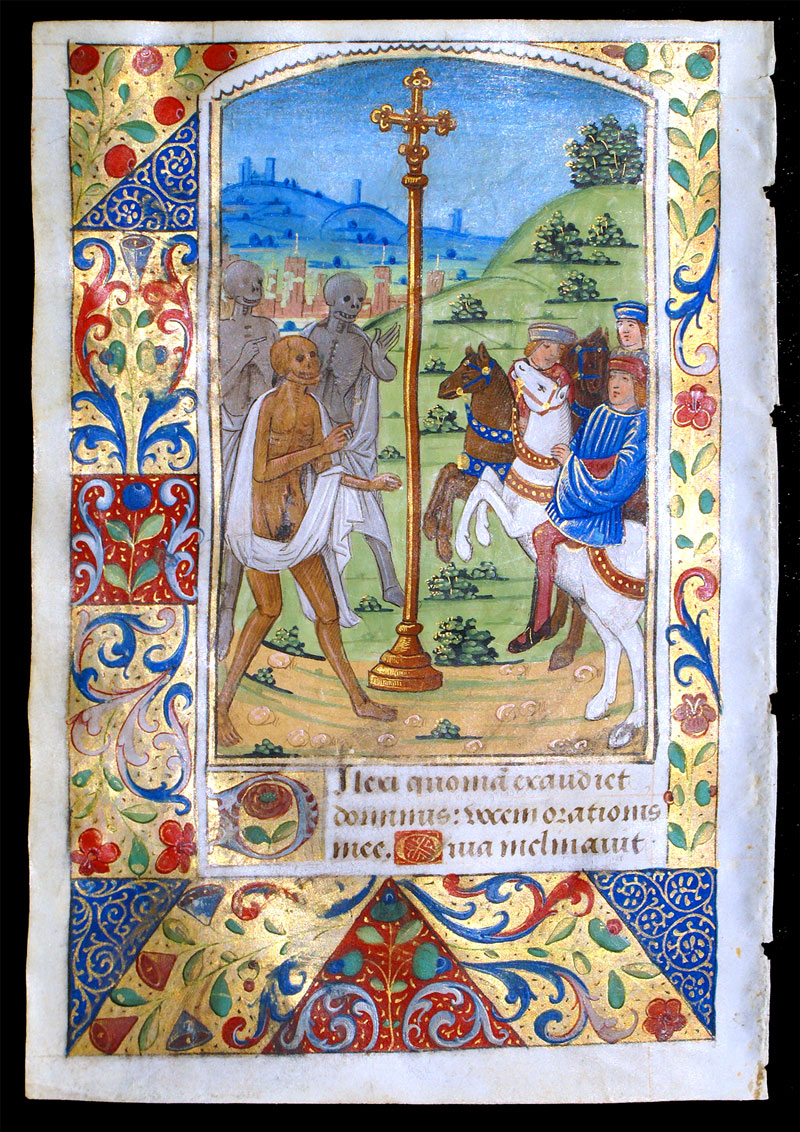 Dilexi quoniā exaudiet
dominus: vocem orationis
mee. Quia inclinavit